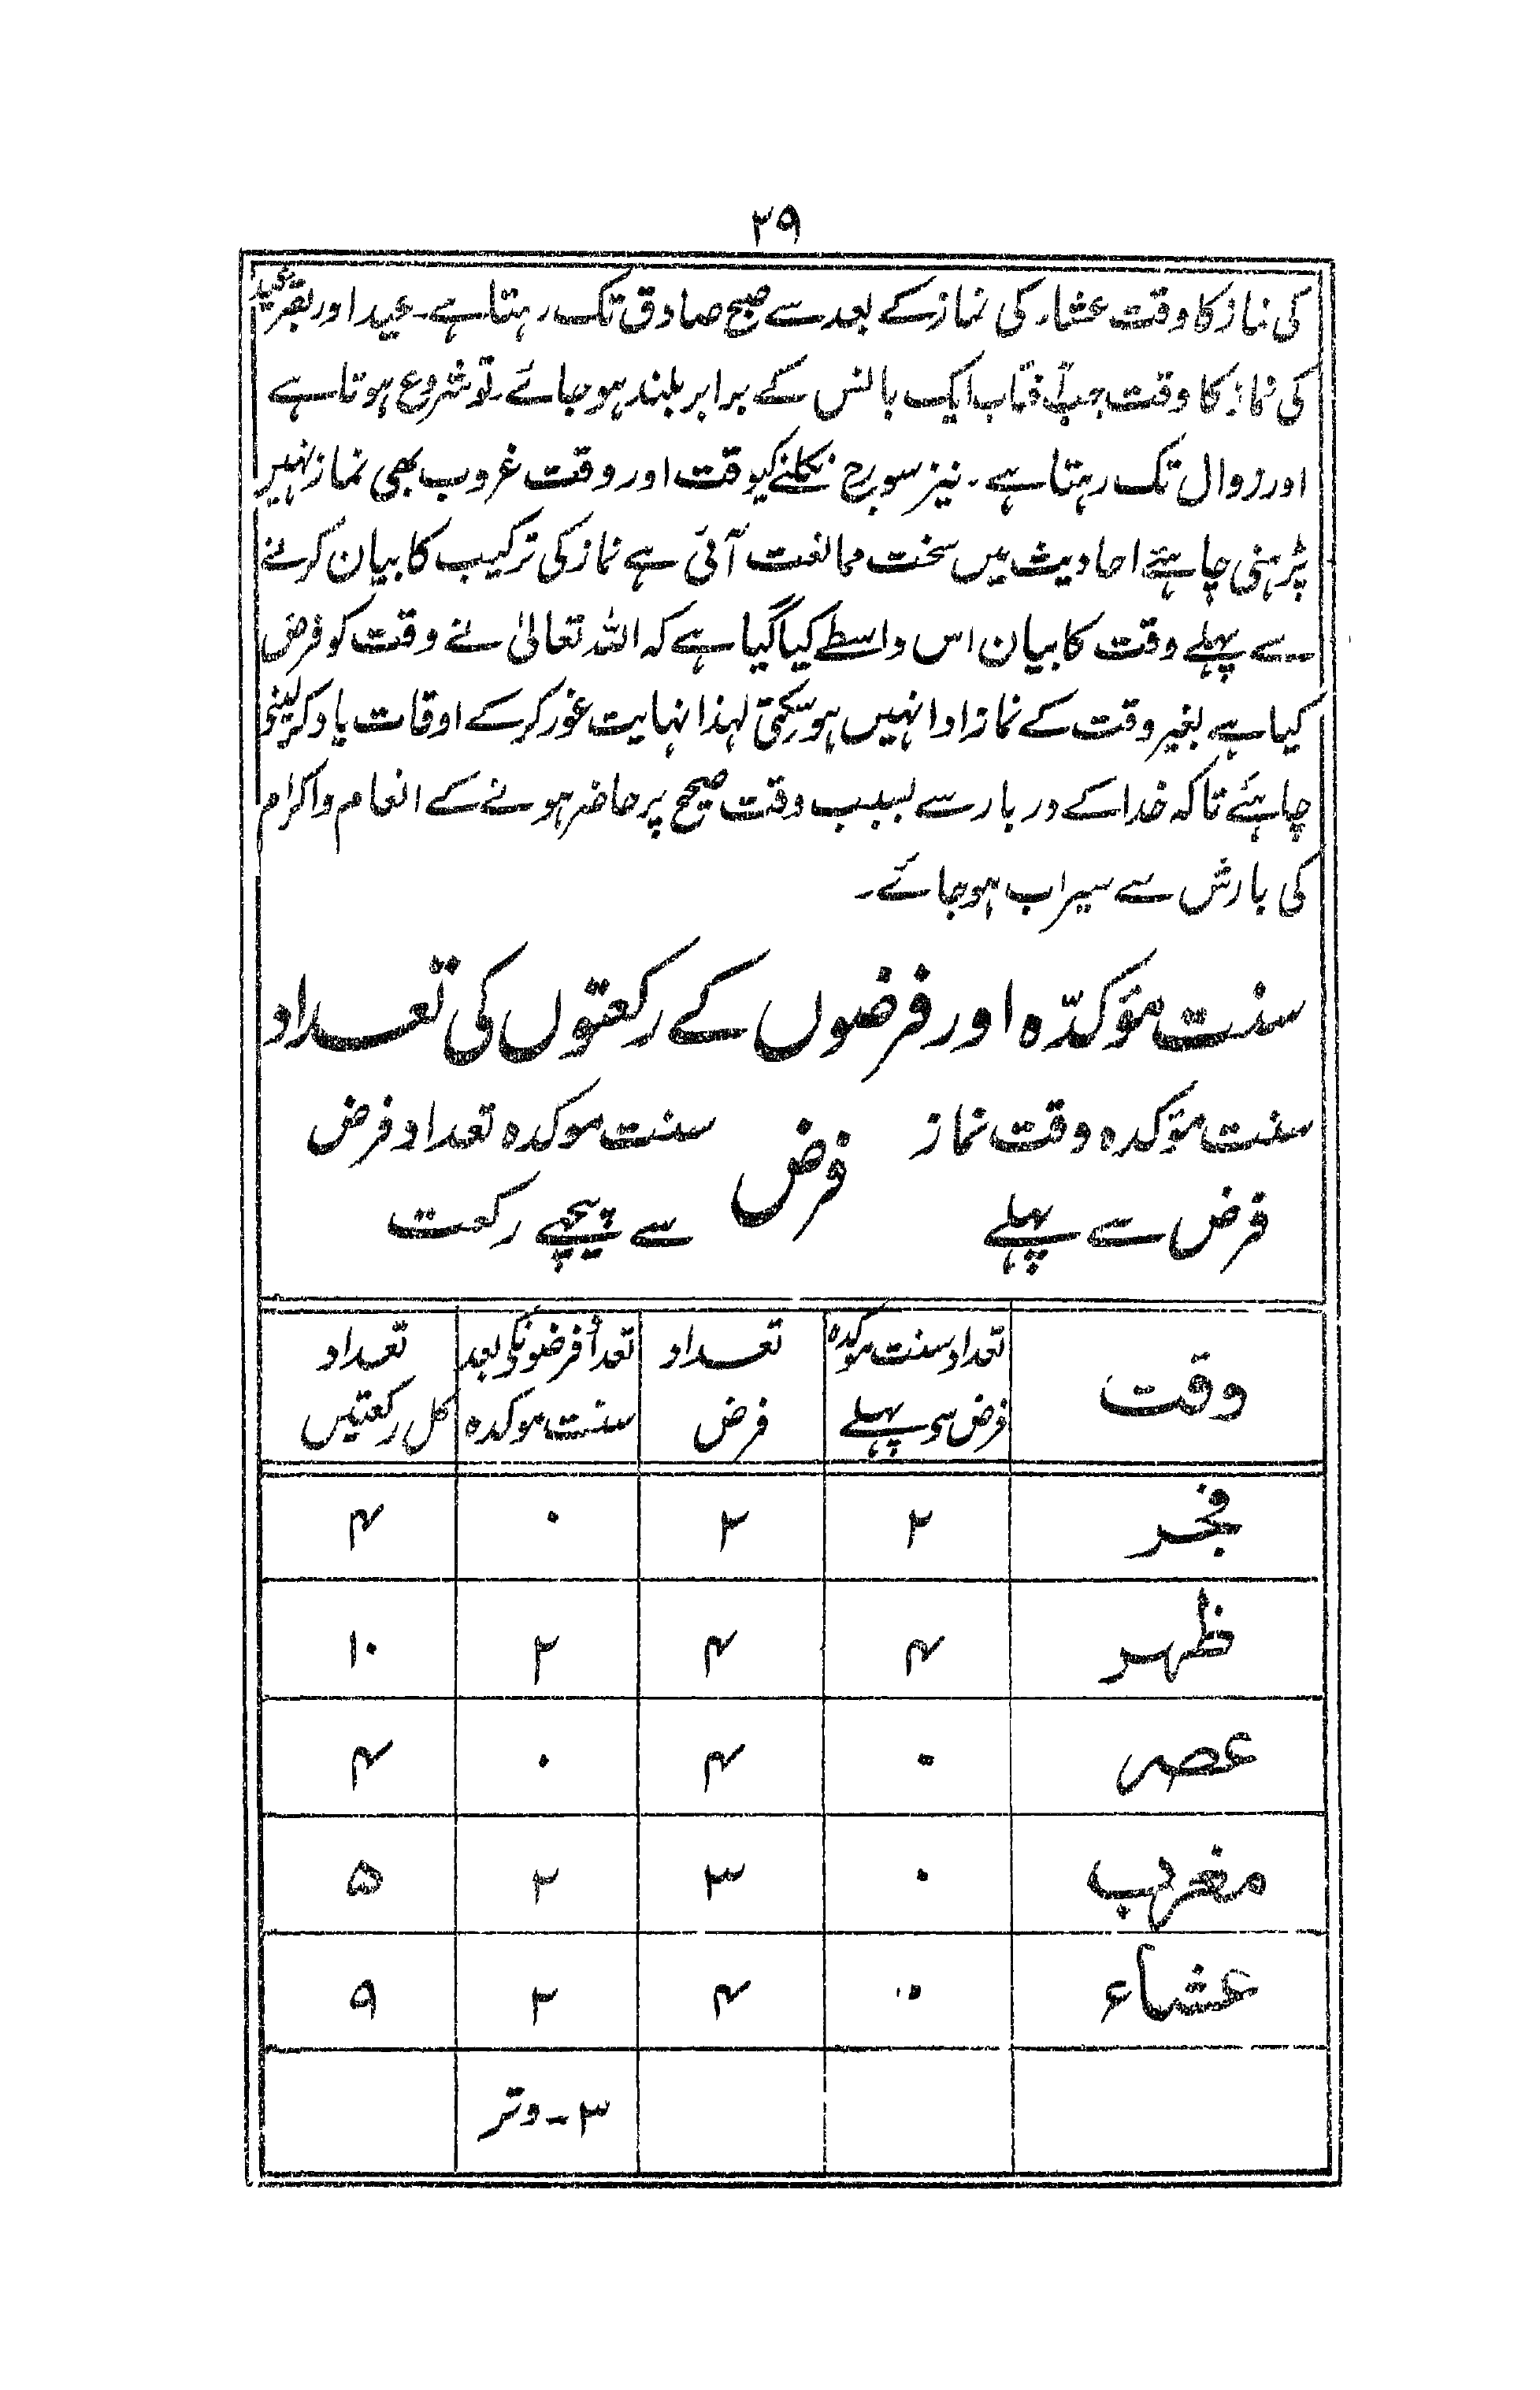 ۲۹
کی نماز کا وقت عشاء کی نماز کے بعد سے صبح صادق تک رہتا ہے۔ عید اور بقر عید
کی نماز کا وقت جب آفتاب ایک بانس کے برابر بلند ہو جائے۔ تو شروع ہوتا ہے
اور زوال تک رہتا ہے۔ نیز سورج نکلنے کیوقت اور وقت غروب بھی نماز نہیں
پڑہنی چاہئے احادیث میں سخت ممانعت آئی ہے نماز کی ترکیب کا بیان کرنے
سے پہلے وقت کا بیان اس واسطے کیا گیا ہے کہ اللہ تعالیٰ نے وقت کو فرض
کیا ہے بغیر وقت کے نماز ادا نہیں ہو سکتی لہذا نہایت غور کر کے اوقات یاد کر لینی
چاہئے تاکہ خدا کے دربار سے بسبب وقت صحیح پر حاضر ہونے کے انعام و اکرام
کی بارش سے سیراب ہو جائے۔
سنت مؤکدّہ اور فرضوں کے رکعتوں کی تعداد
سنت مؤکدہ وقت نماز فرض سنت موکدہ تعداد فرض
فرض سے پہلے سے پیچھے رکعت
وقت تعداد سنت موکدہ تعداد تعداد فرضونکی بعد تعداد
فرض سو پہلے فرض سنت موکدہ کل رکعتیں
فجر ۲ ۲ ۰ ۴
ظہر ۴ ۴ ۲ ۱۰
عصر ۰ ۴ ۰ ۴
مغرب ۰ ۳ ۲ ۵
عشاء ۰ ۴ ۲ ۹
۳-وتر